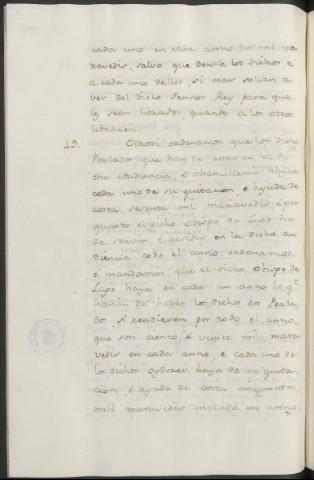 cada uno en cada anno dos mil ma
ravedis, salvo que den a los dichos, e
a cada uno dellos, si mas solian a
ver del dicho Sennor Rey para que
les sean librados, quando a los otros
libraren.
49. Otrossi ordenamos que los dichos
Perlados que han de estar en la di
cha Audiencia, e chancilleria hayan
cada uno de su quitacion e ayuda de
costa sesenta mil maravedis, e por
quanto el dicho Obispo de Lugo ha
de servir e residir en la dicha au
diencia todo el anno, ordenamos,
e mandamos, que el dicho Obispo de
Lugo haya en cada un anno lo qe
havian de haver los dichos dos Perla
dos, si residieren por todo el anno,
que son ciento, e veinte mil mara
vedis en cada anno, e cada uno de
los dichos oydores haya de su quita
cion, e ayuda de costa cinquenta
mil maravedis en cada un anno,